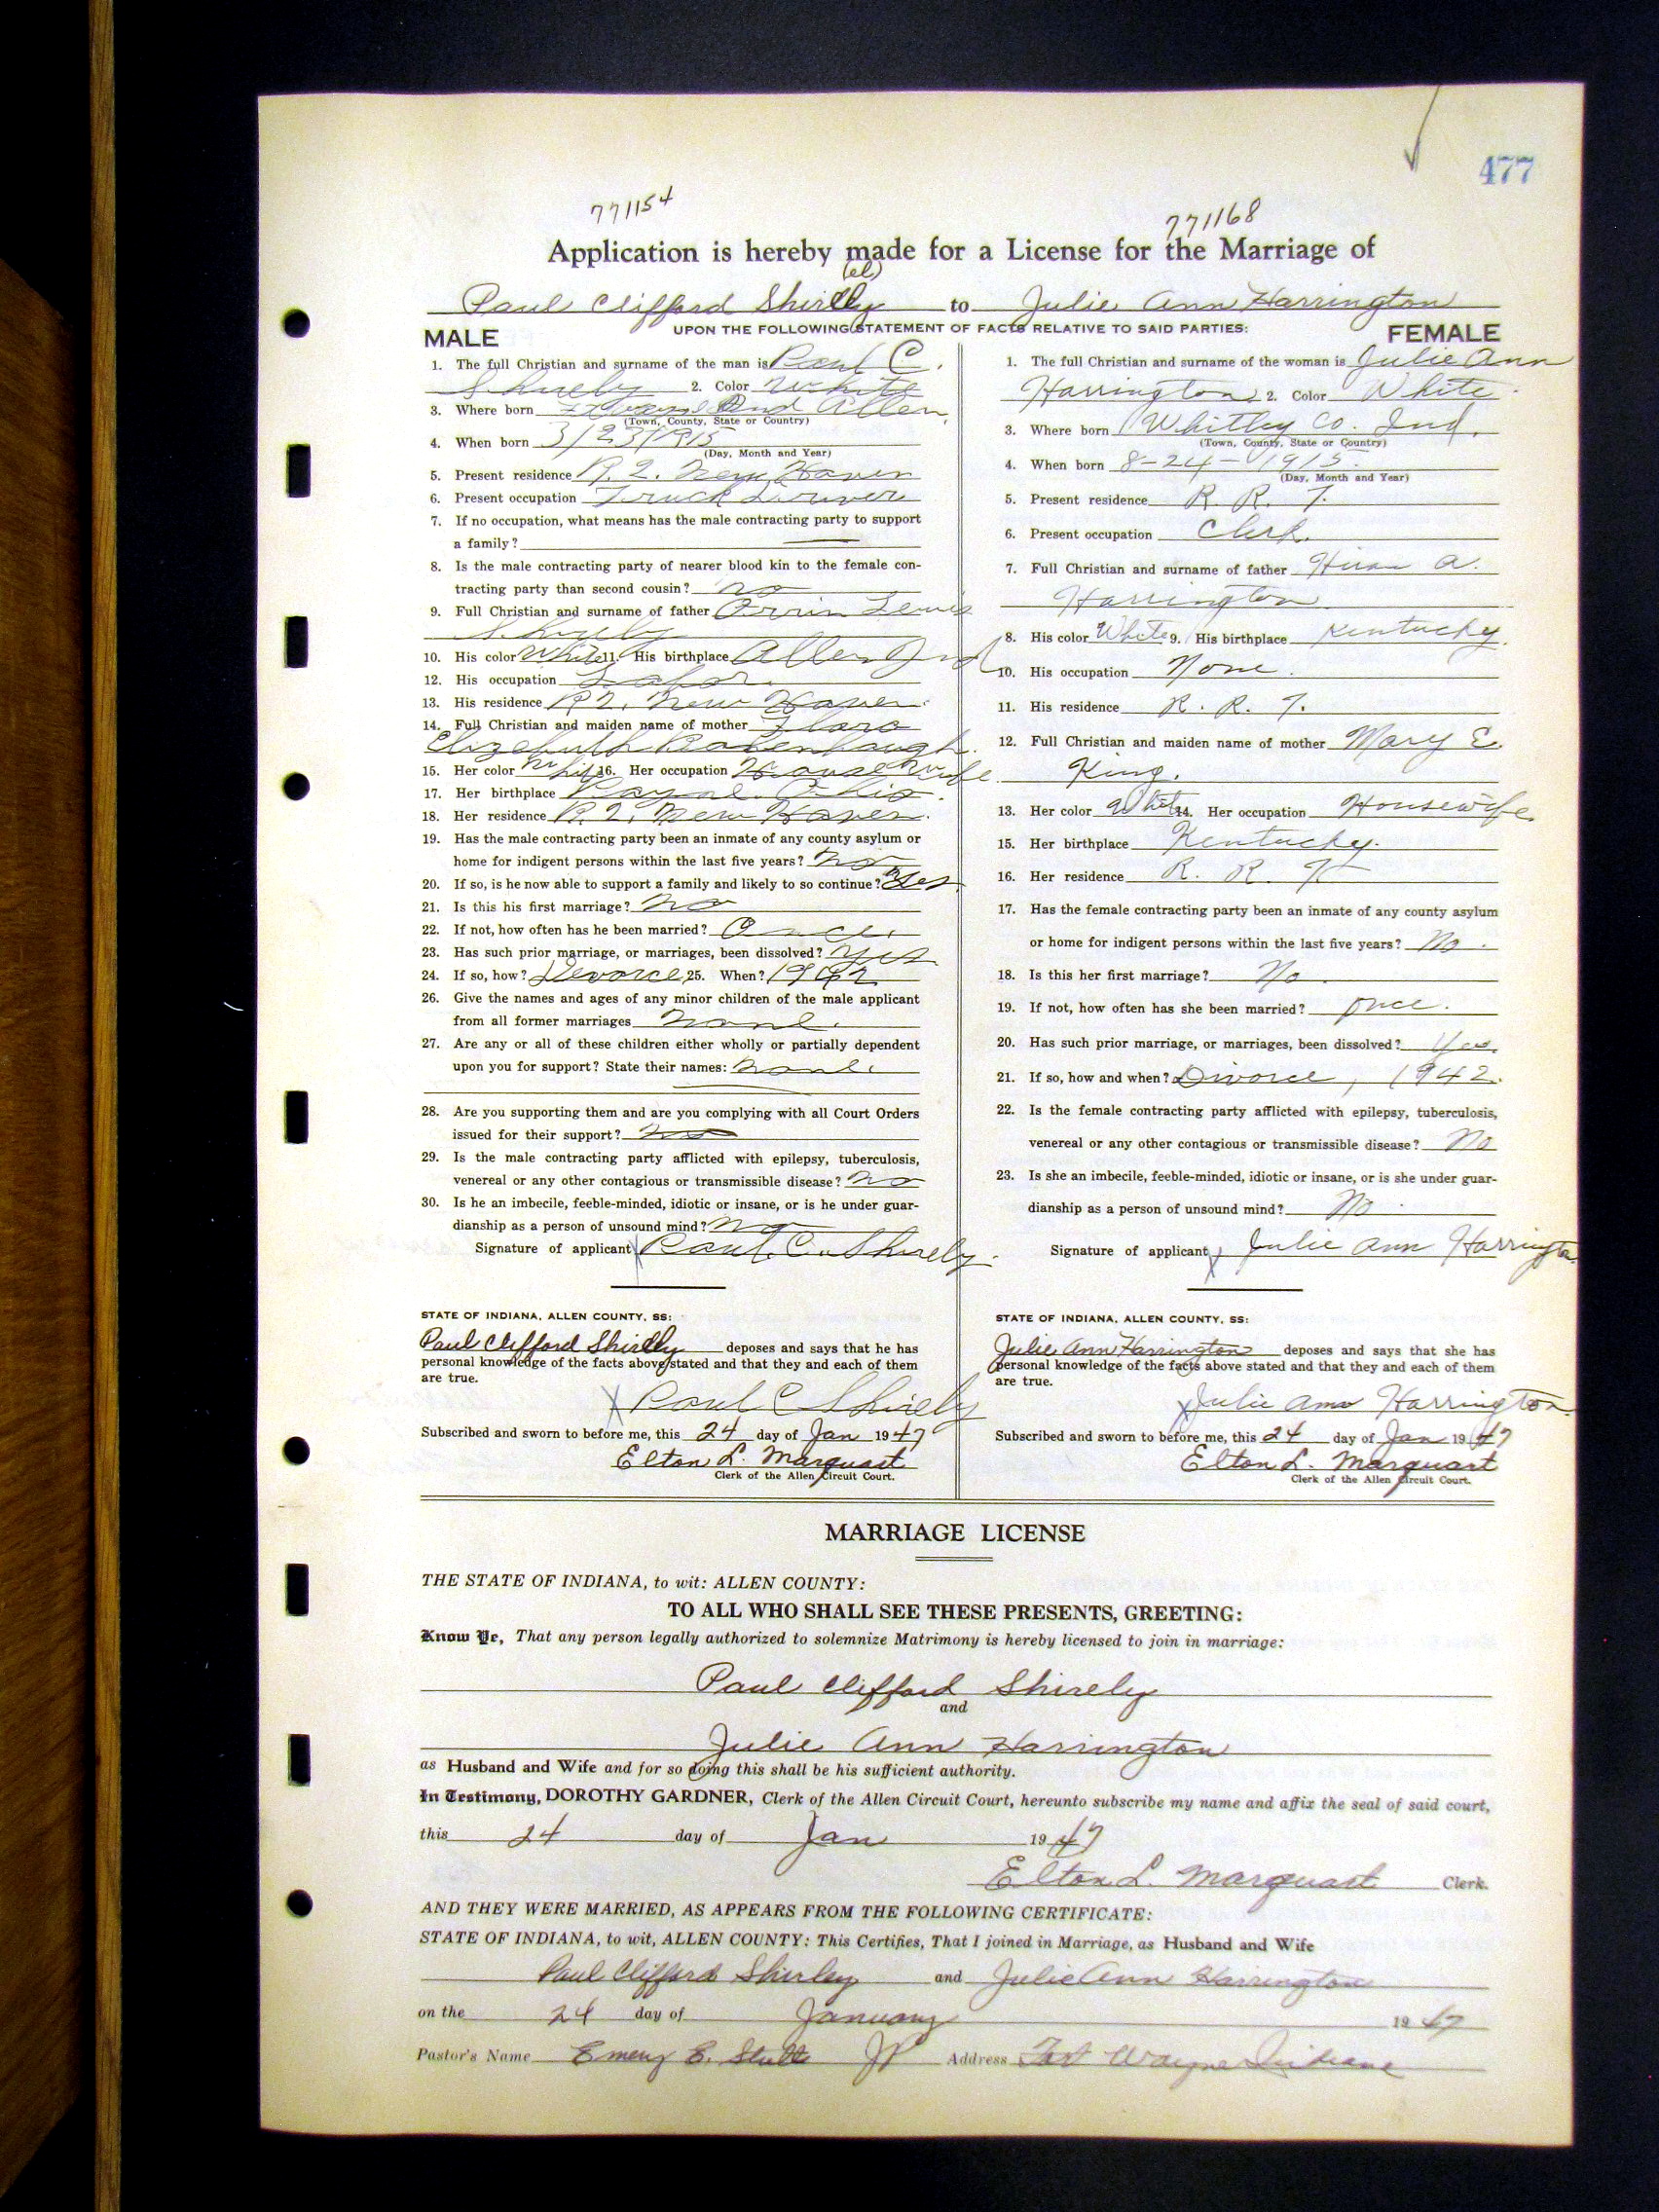 477
771154
771168
Application is hereby made for a License for the Marriage of
(el)
Paul Clifford Shirely to Julie Ann Harrington
UPON THE FOLLOWING STATEMENT OF FACTS RELATIVE TO SAID PARTIES:
MALE
1. The full Christian and surname of the man is Paul C.
Shirely 2. Color White
3. Where born Ind Allen
(Town, County, State or Country)
4. When born 3/23/1915
(Day, Month and Year)
5. Present residence R. 2. New Haven
6. Present occupation Truck Driver
7. If no occupation, what means has the male contracting party to support
a family?
8. Is the male contracting party of nearer blood kin to the female con-
tracting party than second cousin? no
9. Full Christian and surname of father Orrin Lewis
Shirely
10. His color White 11. His birthplace Allen Ind
12. His occupation Labor.
13. His residence R2. New Haven.
14. Full Christian and maiden name of mother Flora
Elizebuth
15. Her color White 16. Her occupation House Wife
17. Her birthplace Payne. Ohio.
18. Her residence R. 2. New Haven.
19. Has the male contracting party been an inmate of any county asylum or
home for indigent persons within the last five years? no
20. If so, is he now able to support a family and likely to so continue? Yes
21. Is this his first marriage? no
22. If not, how often has he been married? Once.
23. Has such prior marriage, or marriages, been dissolved? yes
24. If so, how? Devorce 25. When? 1942
26. Give the names and ages of any minor children of the male applicant
from all former marriages none.
27. Are any or all of these children either wholly or partially dependent
upon you for support? State their names: none.
28. Are you supporting them and are you complying with all Court Orders
issued for their support? no
29. Is the male contracting party afflicted with epilepsy, tuberculosis,
venereal or any other contagious or transmissible disease? no
30. Is he an imbecile, feeble-minded, idiotic or insane, or is he under guar-
dianship as a person of unsound mind? no
Signature of applicant X Paul. C. Shirely.
STATE OF INDIANA, ALLEN COUNTY, SS:
Paul Clifford Shirely deposes and says that he has
personal knowledge of the facts above stated and that they and each of them
are true.
X Paul C Shirely
Subscribed and sworn to before me, this 24 day of Jan 1947
Elton L. Marquart
Clerk of the Allen Circuit Court.
FEMALE
1. The full Christian and surname of the woman is Julie Ann
Harrington 2. Color White
3. Where born Whitley Co. Ind.
(Town, County, State or Country)
4. When born 8-24-1915.
(Day, Month and Year)
5. Present residence R. R. 7.
6. Present occupation Clerk.
7. Full Christian and surname of father Hiram A.
Harrington
8. His color White 9. His birthplace Kentucky.
10. His occupation None.
11. His residence R. R. 7.
12. Full Christian and maiden name of mother Mary E.
King.
13. Her color White 14. Her occupation Housewife
15. Her birthplace Kentucky.
16. Her residence R. R. 7
17. Has the female contracting party been an inmate of any county asylum
or home for indigent persons within the last five years? No.
18. Is this her first marriage? No
19. If not, how often has she been married? once.
20. Has such prior marriage, or marriages, been dissolved? Yes.
21. If so, how and when? Divorce, 1942.
22. Is the female contracting party afflicted with epilepsy, tuberculosis,
venereal or any other contagious or transmissible disease? No
23. Is she an imbecile, feeble-minded, idiotic or insane, or is she under guar-
dianship as a person of unsound mind? No.
Signature of applicant X Julie Ann Harrington
STATE OF INDIANA, ALLEN COUNTY, SS:
Julie Ann Harrington deposes and says that she has
personal knowledge of the facts above stated and that they and each of them
are true.
X Julie Ann Harrington.
Subscribed and sworn to before me, this 24 day of Jan 1947
Elton L. Marquart
Clerk of the Allen Circuit Court.
MARRIAGE LICENSE
THE STATE OF INDIANA, to wit: ALLEN COUNTY:
TO ALL WHO SHALL SEE THESE PRESENTS, GREETING:
Know Ye, That any person legally authorized to solemnize Matrimony is hereby licensed to join in marriage:
Paul Clifford Shirely
and
Julie Ann Harrington
as Husband and Wife and for so doing this shall be his sufficient authority.
In Testimony, DOROTHY GARDNER, Clerk of the Allen Circuit Court, hereunto subscribe my name and affix the seal of said court,
this 24 day of Jan 1947
Elton L. Marquart Clerk.
AND THEY WERE MARRIED, AS APPEARS FROM THE FOLLOWING CERTIFICATE:
STATE OF INDIANA, to wit, ALLEN COUNTY: This Certifies, That I joined in Marriage, as Husband and Wife
Paul Clifford Shirley and Julie Ann Harrington
on the 24 day of January 1947
Pastor's Name Emery E. JP Address Fort Wayne Indiana